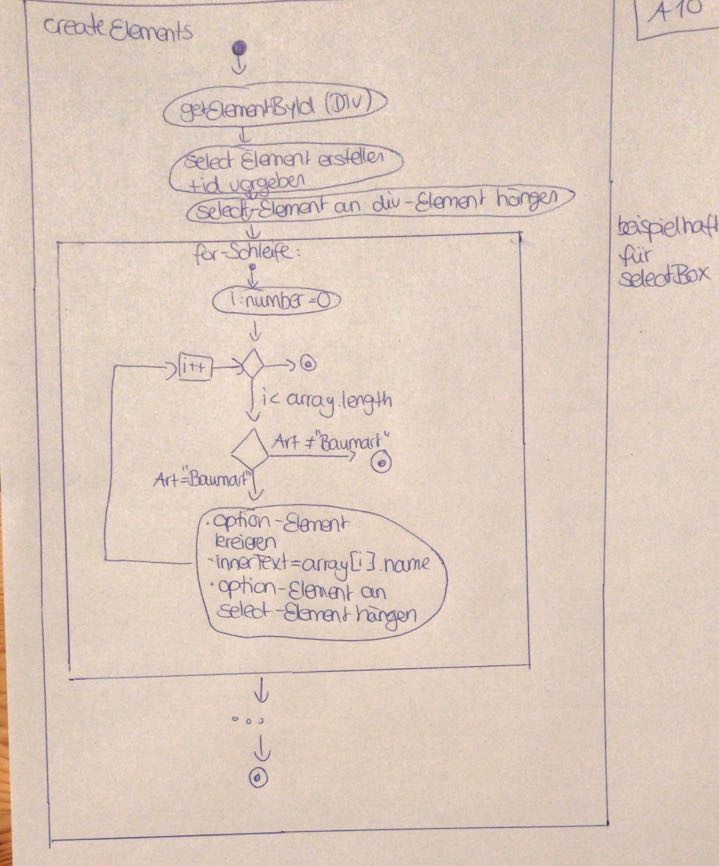 createElements
A10
getElementById (DIV)
select Element erstellen
+id vergeben
select-Element an div-Element hängen
beispielhaft
für
selectBox
for-Schleife:
i:number=0
i++
i< array.length
Art ≠"Baumart"
Art="Baumart"
·option-Element
kreieren
·innerText=array[i].name
·option-Element an
select-Element hängen
...